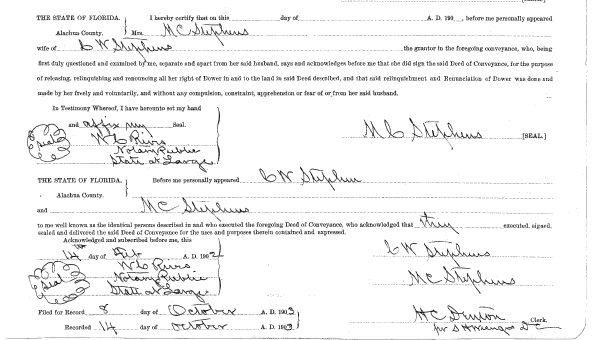 THE STATE OF FLORIDA. I hereby certify that on this day of A. D. 190 , before me personally appeared
Alachua County. Mrs. M C Stephens
wife of C W Stephens the grantor in the foregoing conveyance, who, being
first duly questioned and examined by me, separate and apart from her said husband, says and acknowledges before me that she did sign the said Deed of Conveyance, for the purpose
of releasing, relinquishing and renouncing all her right of Dower in and to the land in said Deed described, and that said relinquishment and Renunciation of Dower was done and
made by her freely and voluntarily, and without any compulsion, constraint, apprehension or fear of or from her said husband.
In Testimony Whereof, I have hereunto set my hand
and affix my Seal.
Seal W C Rivis M C Stephens [SEAL.]
Notary Public
State at Large
THE STATE OF FLORIDA. Before me personally appeared C W Stephens
Alachua County.
and M C Stephens
to me well known as the identical persons described in and who executed the foregoing Deed of Conveyance, who acknowledged that they executed, signed,
sealed and delivered the said Deed of Conveyance for the uses and purposes therein contained and expressed.
Acknowledged and subscribed before me, this
14th day of Feb A. D. 1902 C W Stephens
W C Rivis
Seal Notary Public M C Stephens
State at Large
Filed for Record 8 day of October A. D. 1903 H C Denton Clerk.
Recorded 14 day of October A. D. 1903 per D C